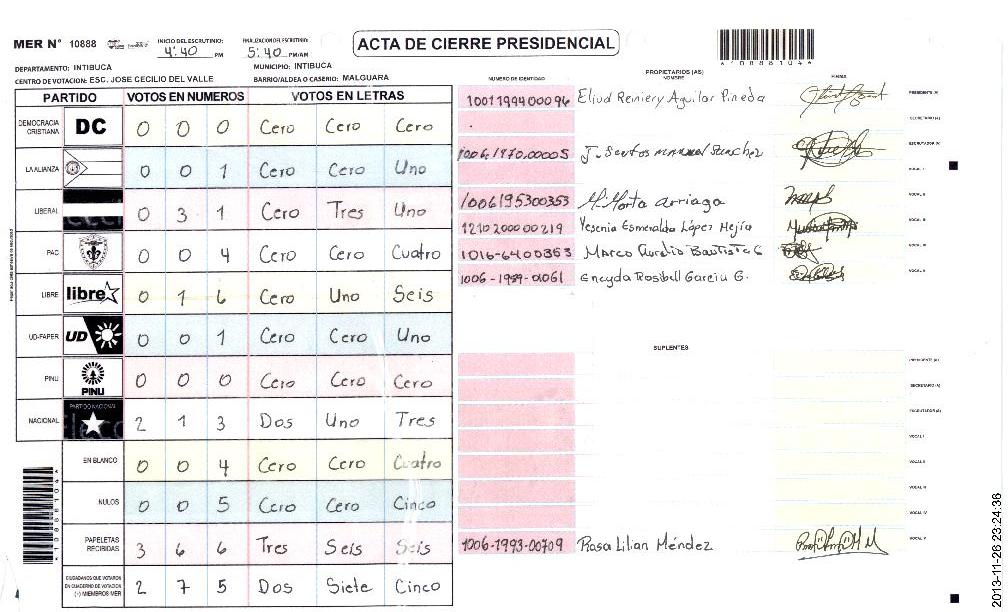 MER N° 10888 INICIO DEL ESCRUTINIO: 4:40 PM FINALIZACION DEL ESCRUTINIO: 5:40 PM/AM ACTA DE CIERRE PRESIDENCIAL
DEPARTAMENTO: INTIBUCA MUNICIPIO: INTIBUCA
CENTRO DE VOTACION: ESC. JOSE CECILIO DEL VALLE BARRIO/ALDEA O CASERIO: MALGUARA
PARTIDO VOTOS EN NUMEROS VOTOS EN LETRAS
DEMOCRACIA CRISTIANA DC 0 0 0 Cero Cero Cero
LA ALIANZA 0 0 1 Cero Cero Uno
LIBERAL 0 3 1 Cero Tres Uno
PAC 0 0 4 Cero Cero Cuatro
LIBRE libre 0 1 6 Cero Uno Seis
UD-FAPER UD 0 0 1 Cero Cero Uno
PINU PINU 0 0 0 Cero Cero Cero
NACIONAL PARTIDO NACIONAL 2 1 3 Dos Uno Tres
EN BLANCO 0 0 4 Cero Cero Cuatro
NULOS 0 0 5 Cero Cero Cinco
PAPELETAS RECIBIDAS 3 6 6 Tres Seis Seis
CIUDADANOS QUE VOTARON EN CUADERNO DE VOTACION (+) MIEMBROS MER 2 7 5 Dos Siete Cinco
NUMERO DE IDENTIDAD PROPIETARIOS (AS) NOMBRE FIRMA
1001199400096 Eliud Reniery Aguilar Pineda PRESIDENTE (A)
SECRETARIO (A)
1006197000005 J. Santos Manuel Sanchez ESCRUTADOR (A)
VOCAL I
1006195300353 M. Marta Arriaga VOCAL II
1210200000219 Yesenia Esmeralda López Mejía VOCAL III
1016-6400363 Marco Aurelio Bautista G VOCAL IV
1006-1989-01061 Eneyda Rosibell Garcia G. VOCAL V
SUPLENTES
PRESIDENTE (A)
SECRETARIO (A)
ESCRUTADOR (A)
VOCAL I
VOCAL II
VOCAL III
VOCAL IV
1006-1993-00709 Rosa Lilian Méndez VOCAL V
2013-11-26 23:24:36